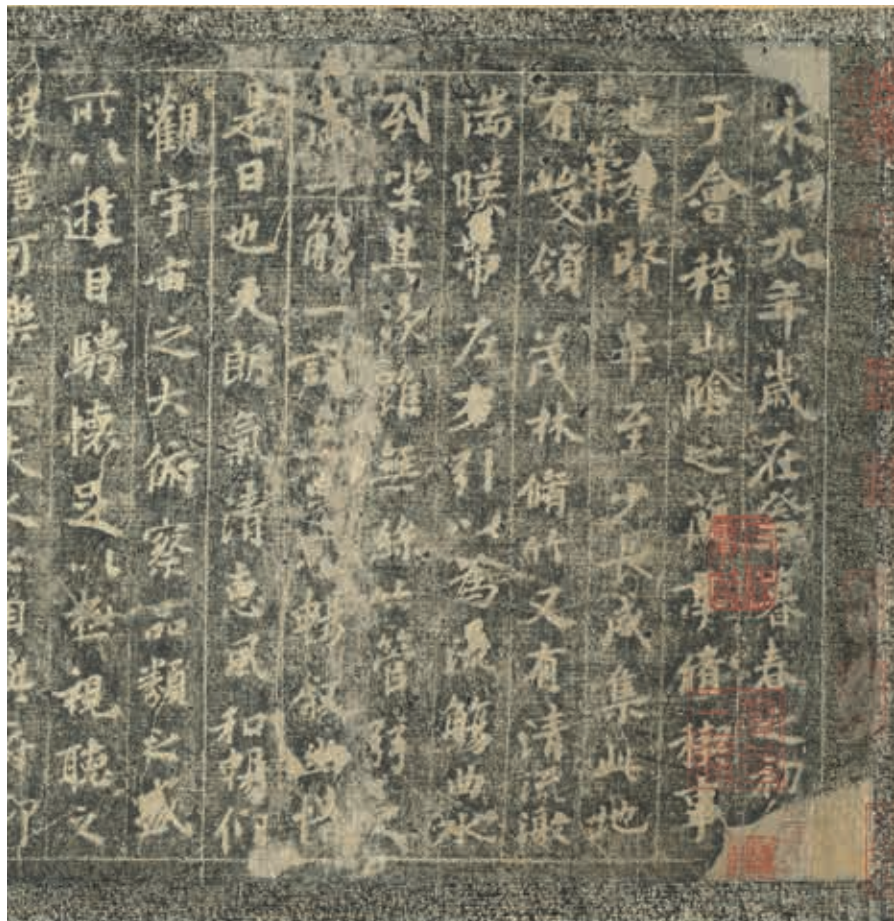 永和九年歲在癸暮春之初
于會稽山陰之蘭亭脩稧事
也羣賢畢至少長咸集此地
有崇山峻領茂林脩竹又有清流激
湍暎帶左右引以為流觴曲水
列坐其次雖無絲竹管弦之
盛一觴一詠以暢叙幽情
是日也天朗氣清惠風和暢仰
觀宇宙之大俯察品類之盛
所以遊目騁懷足以極視聽之
娛信可樂也夫人之相與俯仰